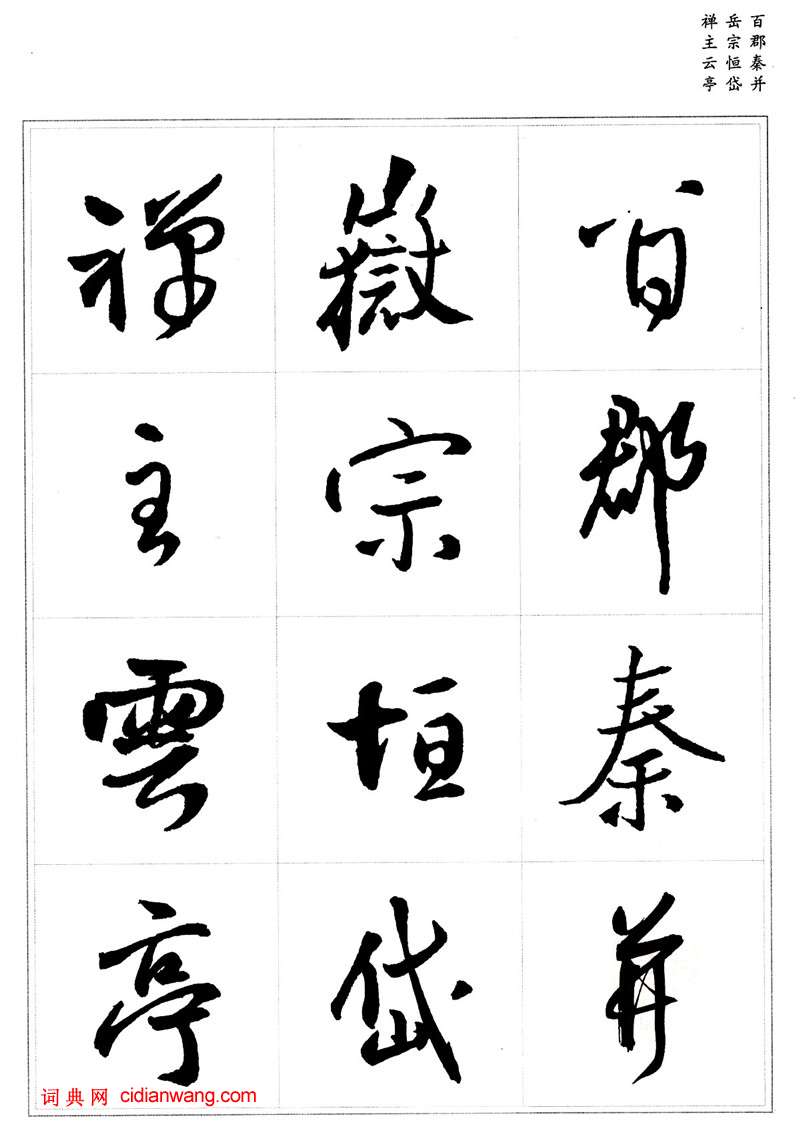 百郡秦并
岳宗恒岱
禅主云亭
百郡秦并
嶽宗恒岱
禅主雲亭
词典网 cidianwang.com